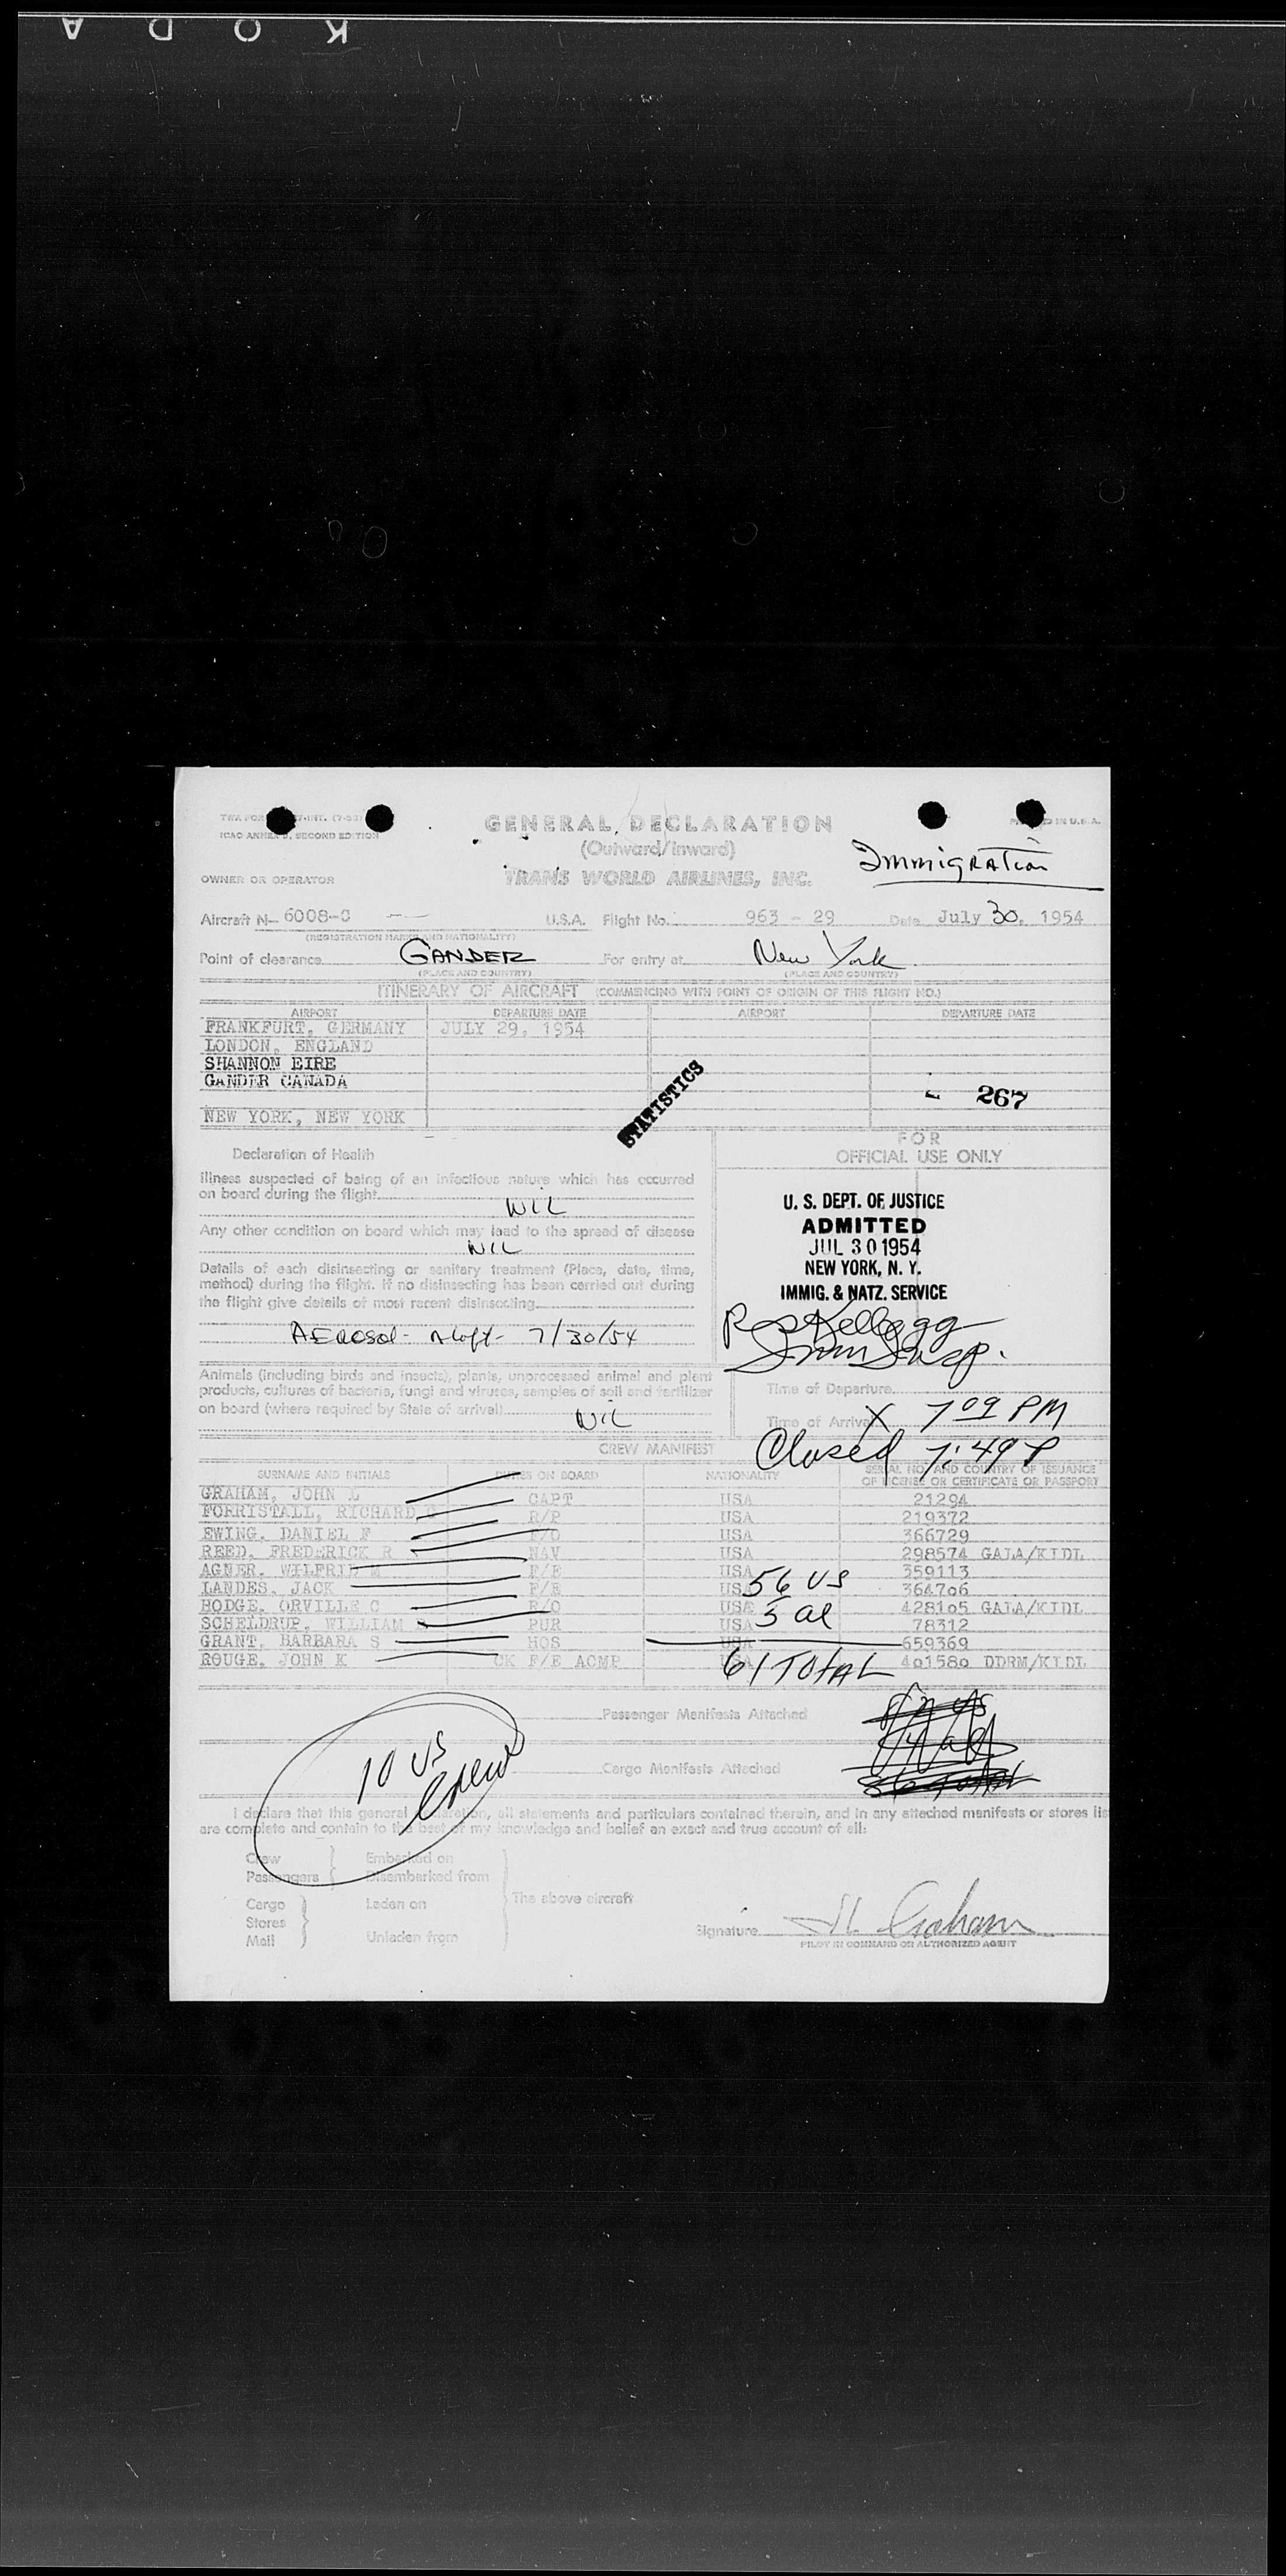 KODA
GENERAL DECLARATION
(Outward/Inward)
TRANS WORLD AIRLINES, INC.
Immigration
ICAO ANNEX SECOND EDITION
OWNER OR OPERATOR
Aircraft N-- 6008-C U.S.A. Flight No. 963 - 29 Date July 30, 1954
(REGISTRATION MARKS AND NATIONALITY)
Point of clearance GANDER For entry at New York
(PLACE AND COUNTRY) (PLACE AND COUNTRY)
ITINERARY OF AIRCRAFT (COMMENCING WITH POINT OF ORIGIN OF THIS FLIGHT NO.)
AIRPORT DEPARTURE DATE AIRPORT DEPARTURE DATE
FRANKFURT, GERMANY JULY 29, 1954
LONDON, ENGLAND
SHANNON EIRE
GANDER CANADA
267
NEW YORK, NEW YORK
STATISTICS
Declaration of Health
Illness suspected of being of an infectious nature which has occurred
on board during the flight
NIL
Any other condition on board which may lead to the spread of disease
NIL
Details of each disinsecting or sanitary treatment (Place, date, time,
method) during the flight. If no disinsecting has been carried out during
the flight give details of most recent disinsecting
AEROSOL - Aloft - 7/30/54
Animals (including birds and insects), plants, unprocessed animal and plant
products, cultures of bacteria, fungi and viruses, samples of soil and fertilizer
on board (where required by State of arrival)
NIL
FOR
OFFICIAL USE ONLY
U. S. DEPT. OF JUSTICE
ADMITTED
JUL 30 1954
NEW YORK, N. Y.
IMMIG. & NATZ. SERVICE
Kellogg
Imm Insp.
Time of Departure
Time of Arrival X 7 09 PM
Closed 7:49 P
CREW MANIFEST
SURNAME AND INITIALS DUTIES ON BOARD NATIONALITY SERIAL NO. AND COUNTRY OF ISSUANCE
OF LICENSE OR CERTIFICATE OR PASSPORT
GRAHAM, JOHN L CAPT USA 21294
FORRISTALL, RICHARD C R/P USA 219372
EWING, DANIEL F F/O USA 366729
REED, FREDERICK R NAV USA 298574 GALA/KIDL
AGNER, WILFRID M F/E USA 359113
LANDES, JACK F/E USA 364706
HODGE, ORVILLE C R/O USA 428105 GALA/KIDL
SCHELDRUP, WILLIAM PUR USA 78312
GRANT, BARBARA S HOS USA 659369
ROUGE, JOHN K CK F/E ACMP USA 401580 DDRM/KIDL
56 US
5 al
61 TOTAL
Passenger Manifests Attached
Cargo Manifests Attached
10 US
Crew
I declare that this general declaration, all statements and particulars contained therein, and in any attached manifests or stores lis
are complete and contain to the best of my knowledge and belief an exact and true account of all:
Crew Embarked on
Passengers Disembarked from
The above aircraft
Cargo Laden on
Stores
Mail Unladen from
Signature JL Graham
PILOT IN COMMAND OR AUTHORIZED AGENT